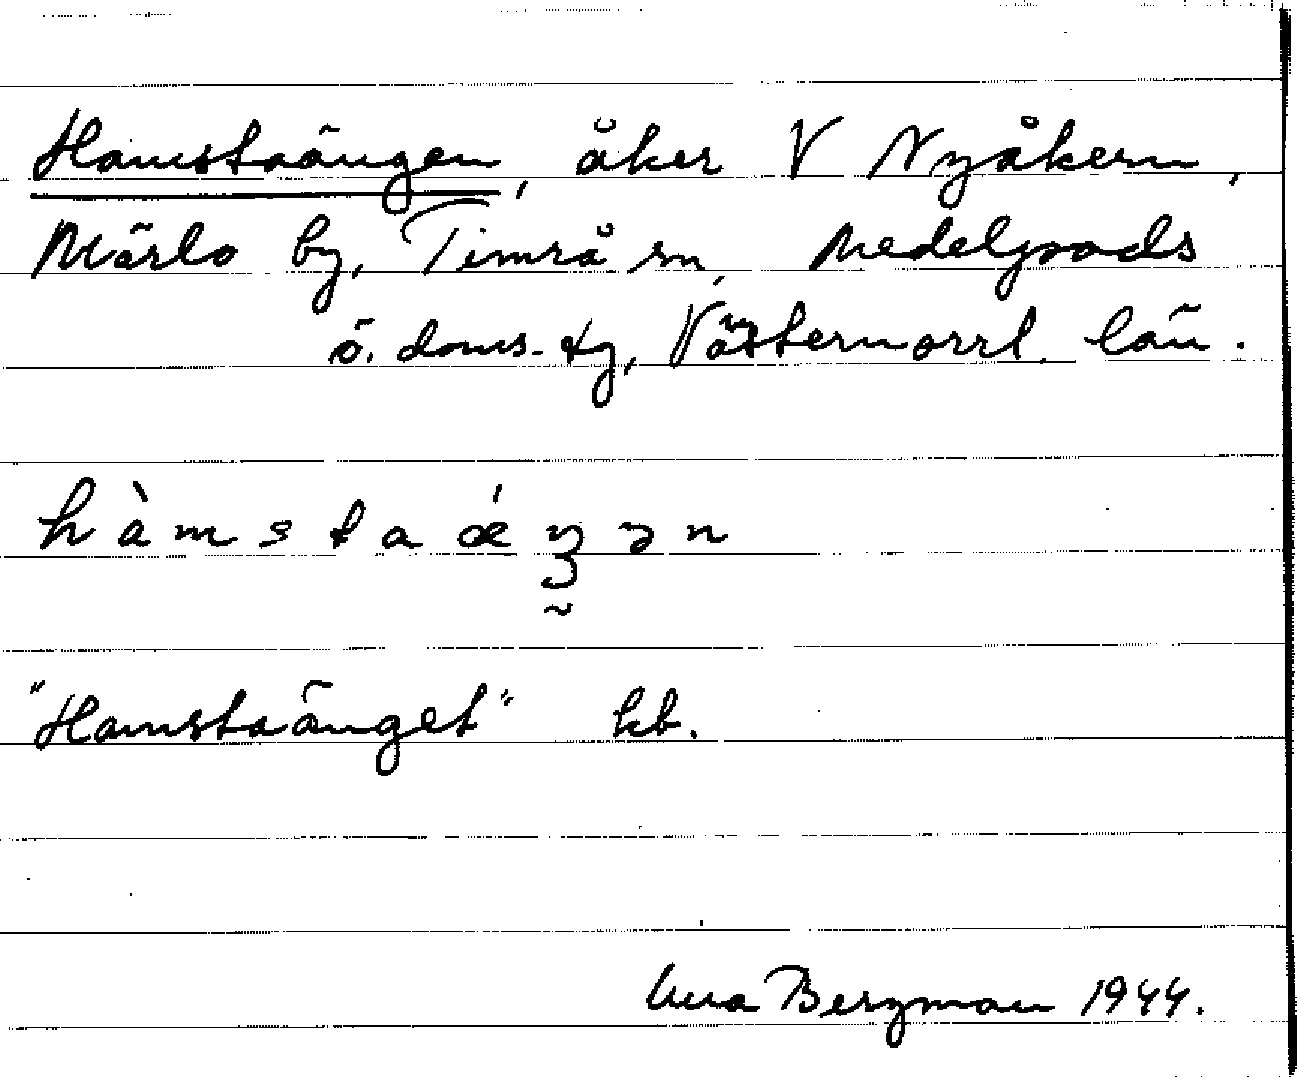 Hamstaängen, åker V Nyåkern,
Märlo by, Timrå sn, Medelpads
ö. doms. tg, Västernorrl. län.
hàmstaǽŋən
"Hamstaänget" kb.
Bergman 1944.